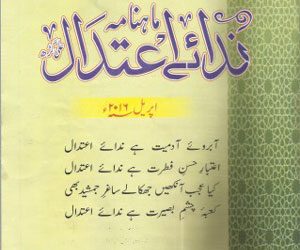 ماہنامہ
ندائے اعتدال
اپریل ۲۰۱۶ء
آبروئے آدمیت ہے ندائے اعتدال
اعتبارِ حسنِ فطرت ہے ندائے اعتدال
کیا عجب آنکھیں جھکالے ساغرِ جمشید بھی
کعبۂ چشمِ بصیرت ہے ندائے اعتدال